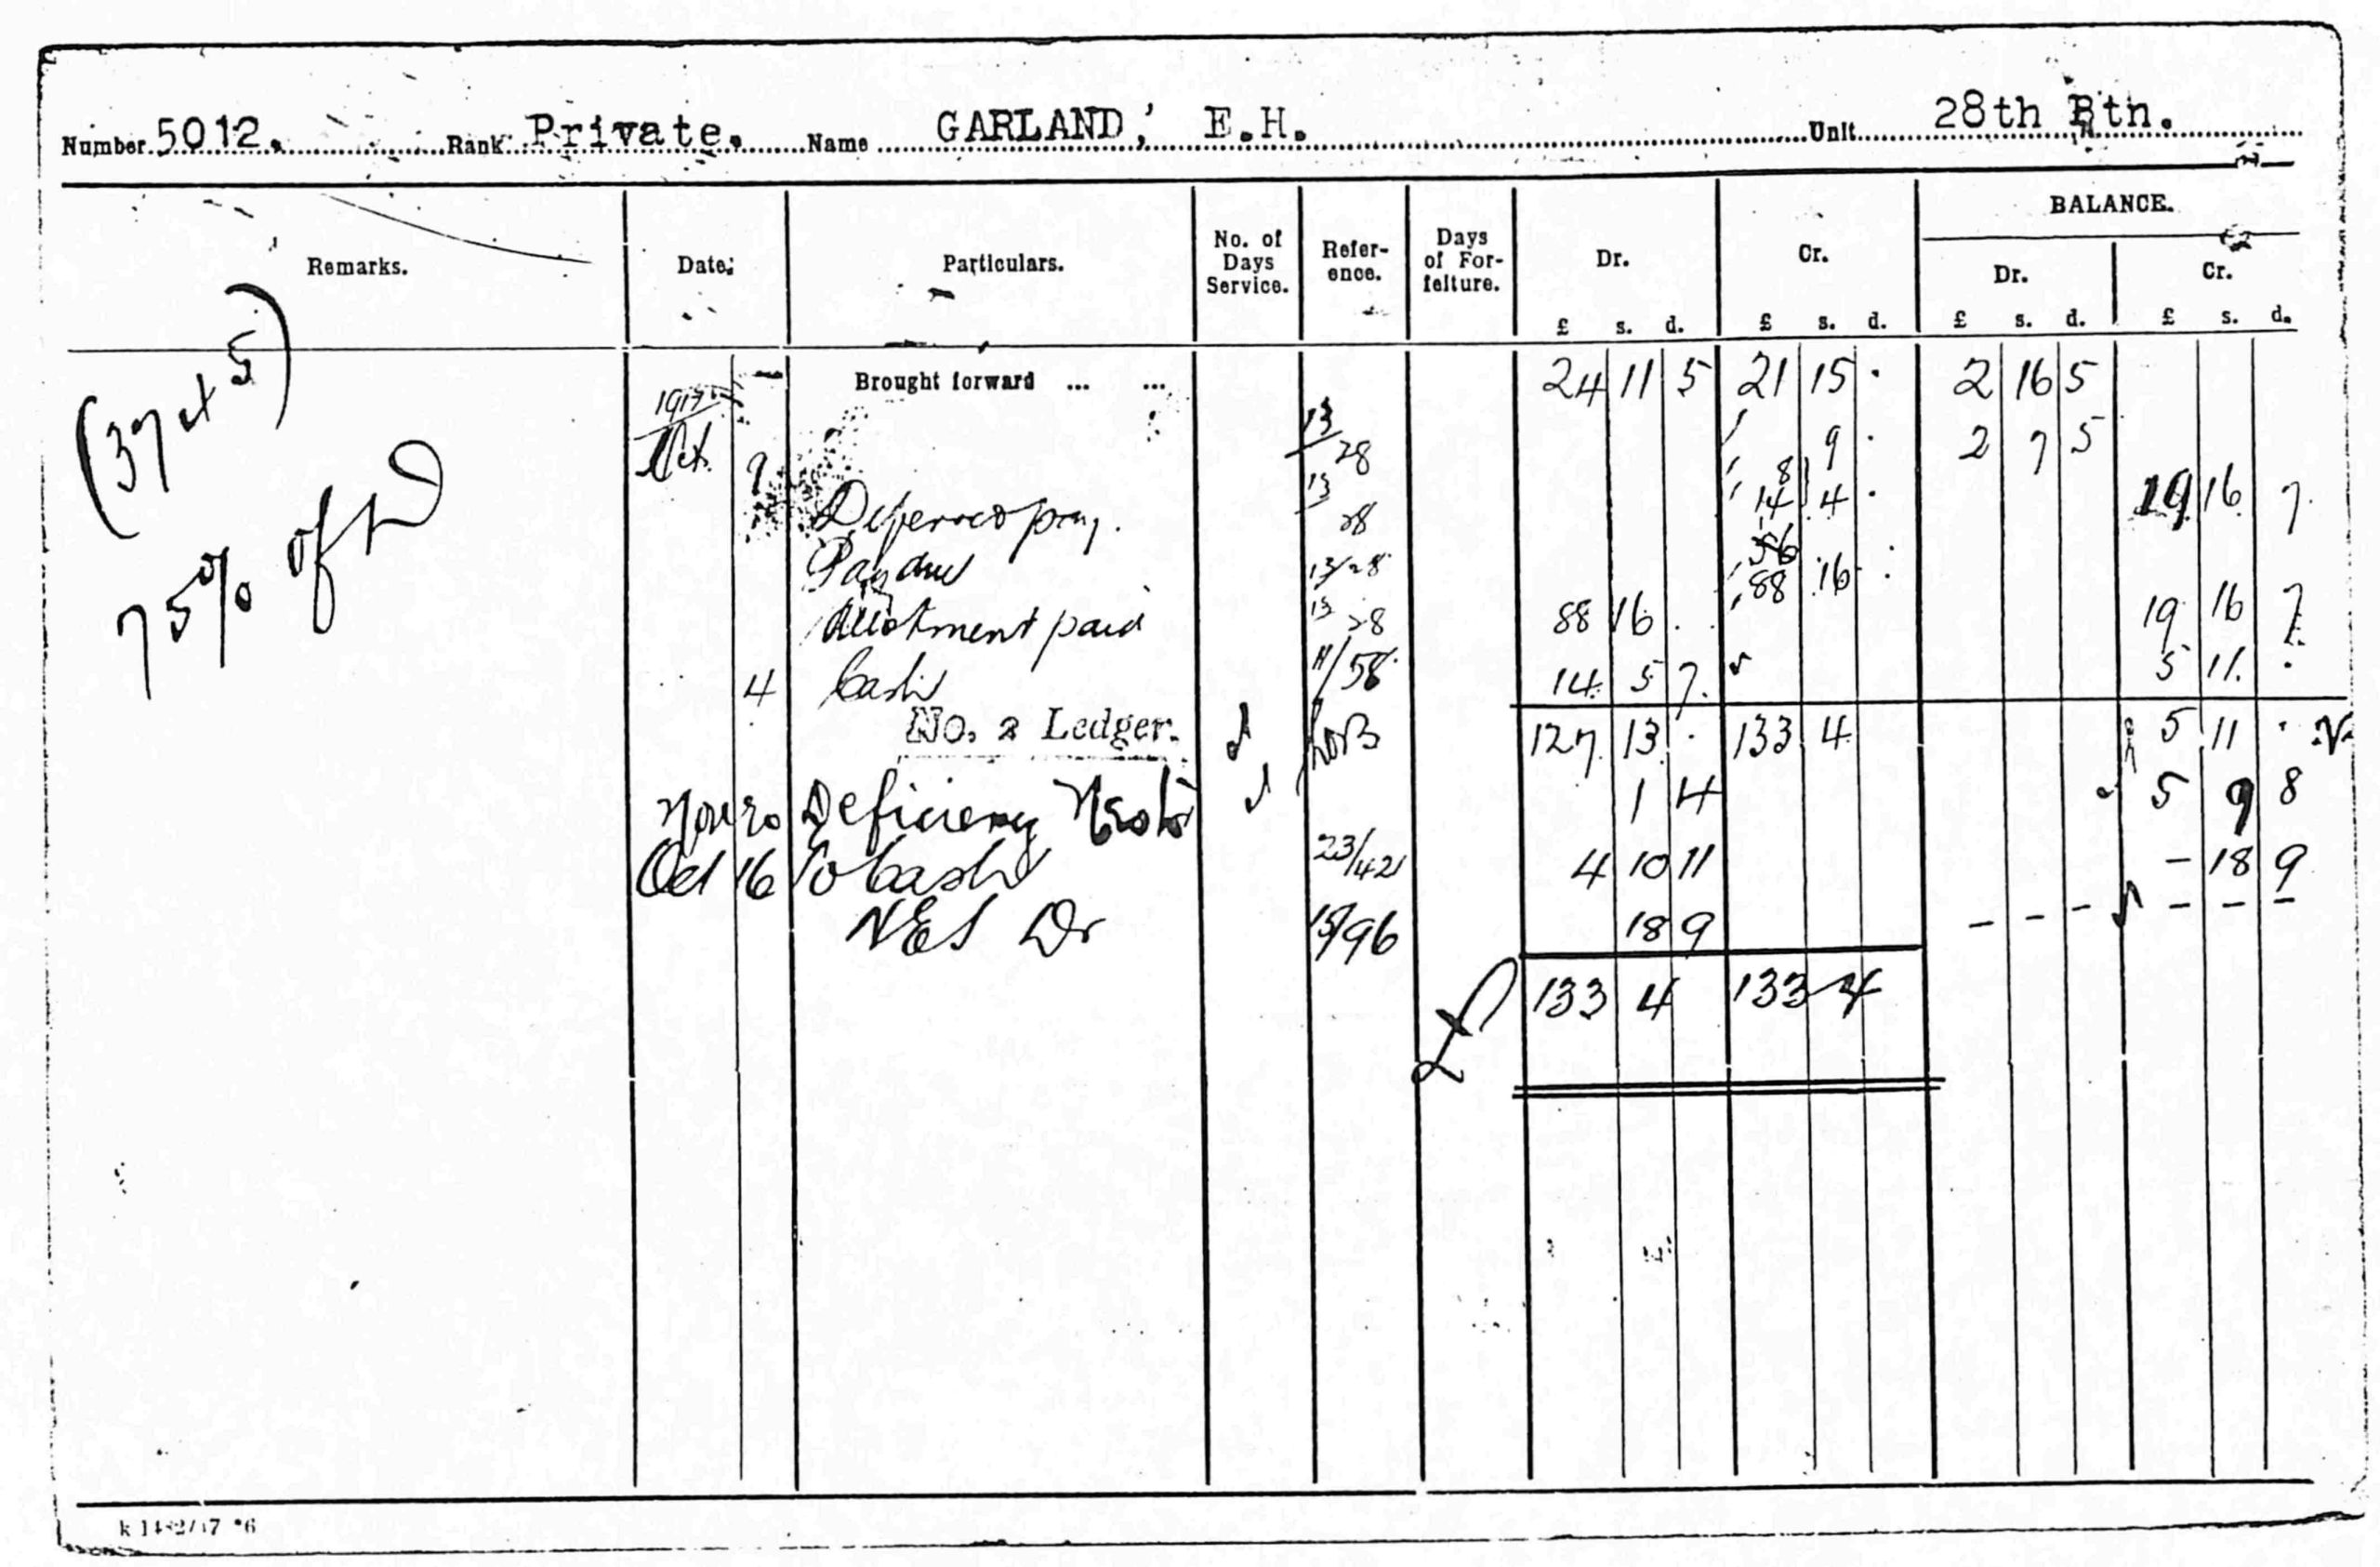 Number 5012. Rank Private. Name GARLAND, E.H. Unit 28th Btn.
BALANCE.
Remarks. Date. Particulars. No. of Days Service. Refer-ence. Days of For-feiture. Dr. Cr. Dr. Cr.
£ s. d. £ s. d. £ s. d. £ s. d.
Brought forward ... ... 24 11 5 21 15 . 2 16 5
(37 at 5)
75% of
1917
Oct 9 13/28 9 . 2 7 5
Deferred pay. 13/28 8 14 4 . 19 16 7
Pay due 13/28 88 16 .
Allotment paid 13/28 88 16 . 19 16 7
4 Cash 11/58 14 5 7 5 11 .
No. 2 Ledger. 127 13 . 133 4 5 11 .
Nov 20 Deficiency 1 4 5 9 8
Oct 16 To Cash 23/42 4 10 11 - 18 9
NES Dr 15/96 18 9 - - - - - -
£ 133 4 133 4